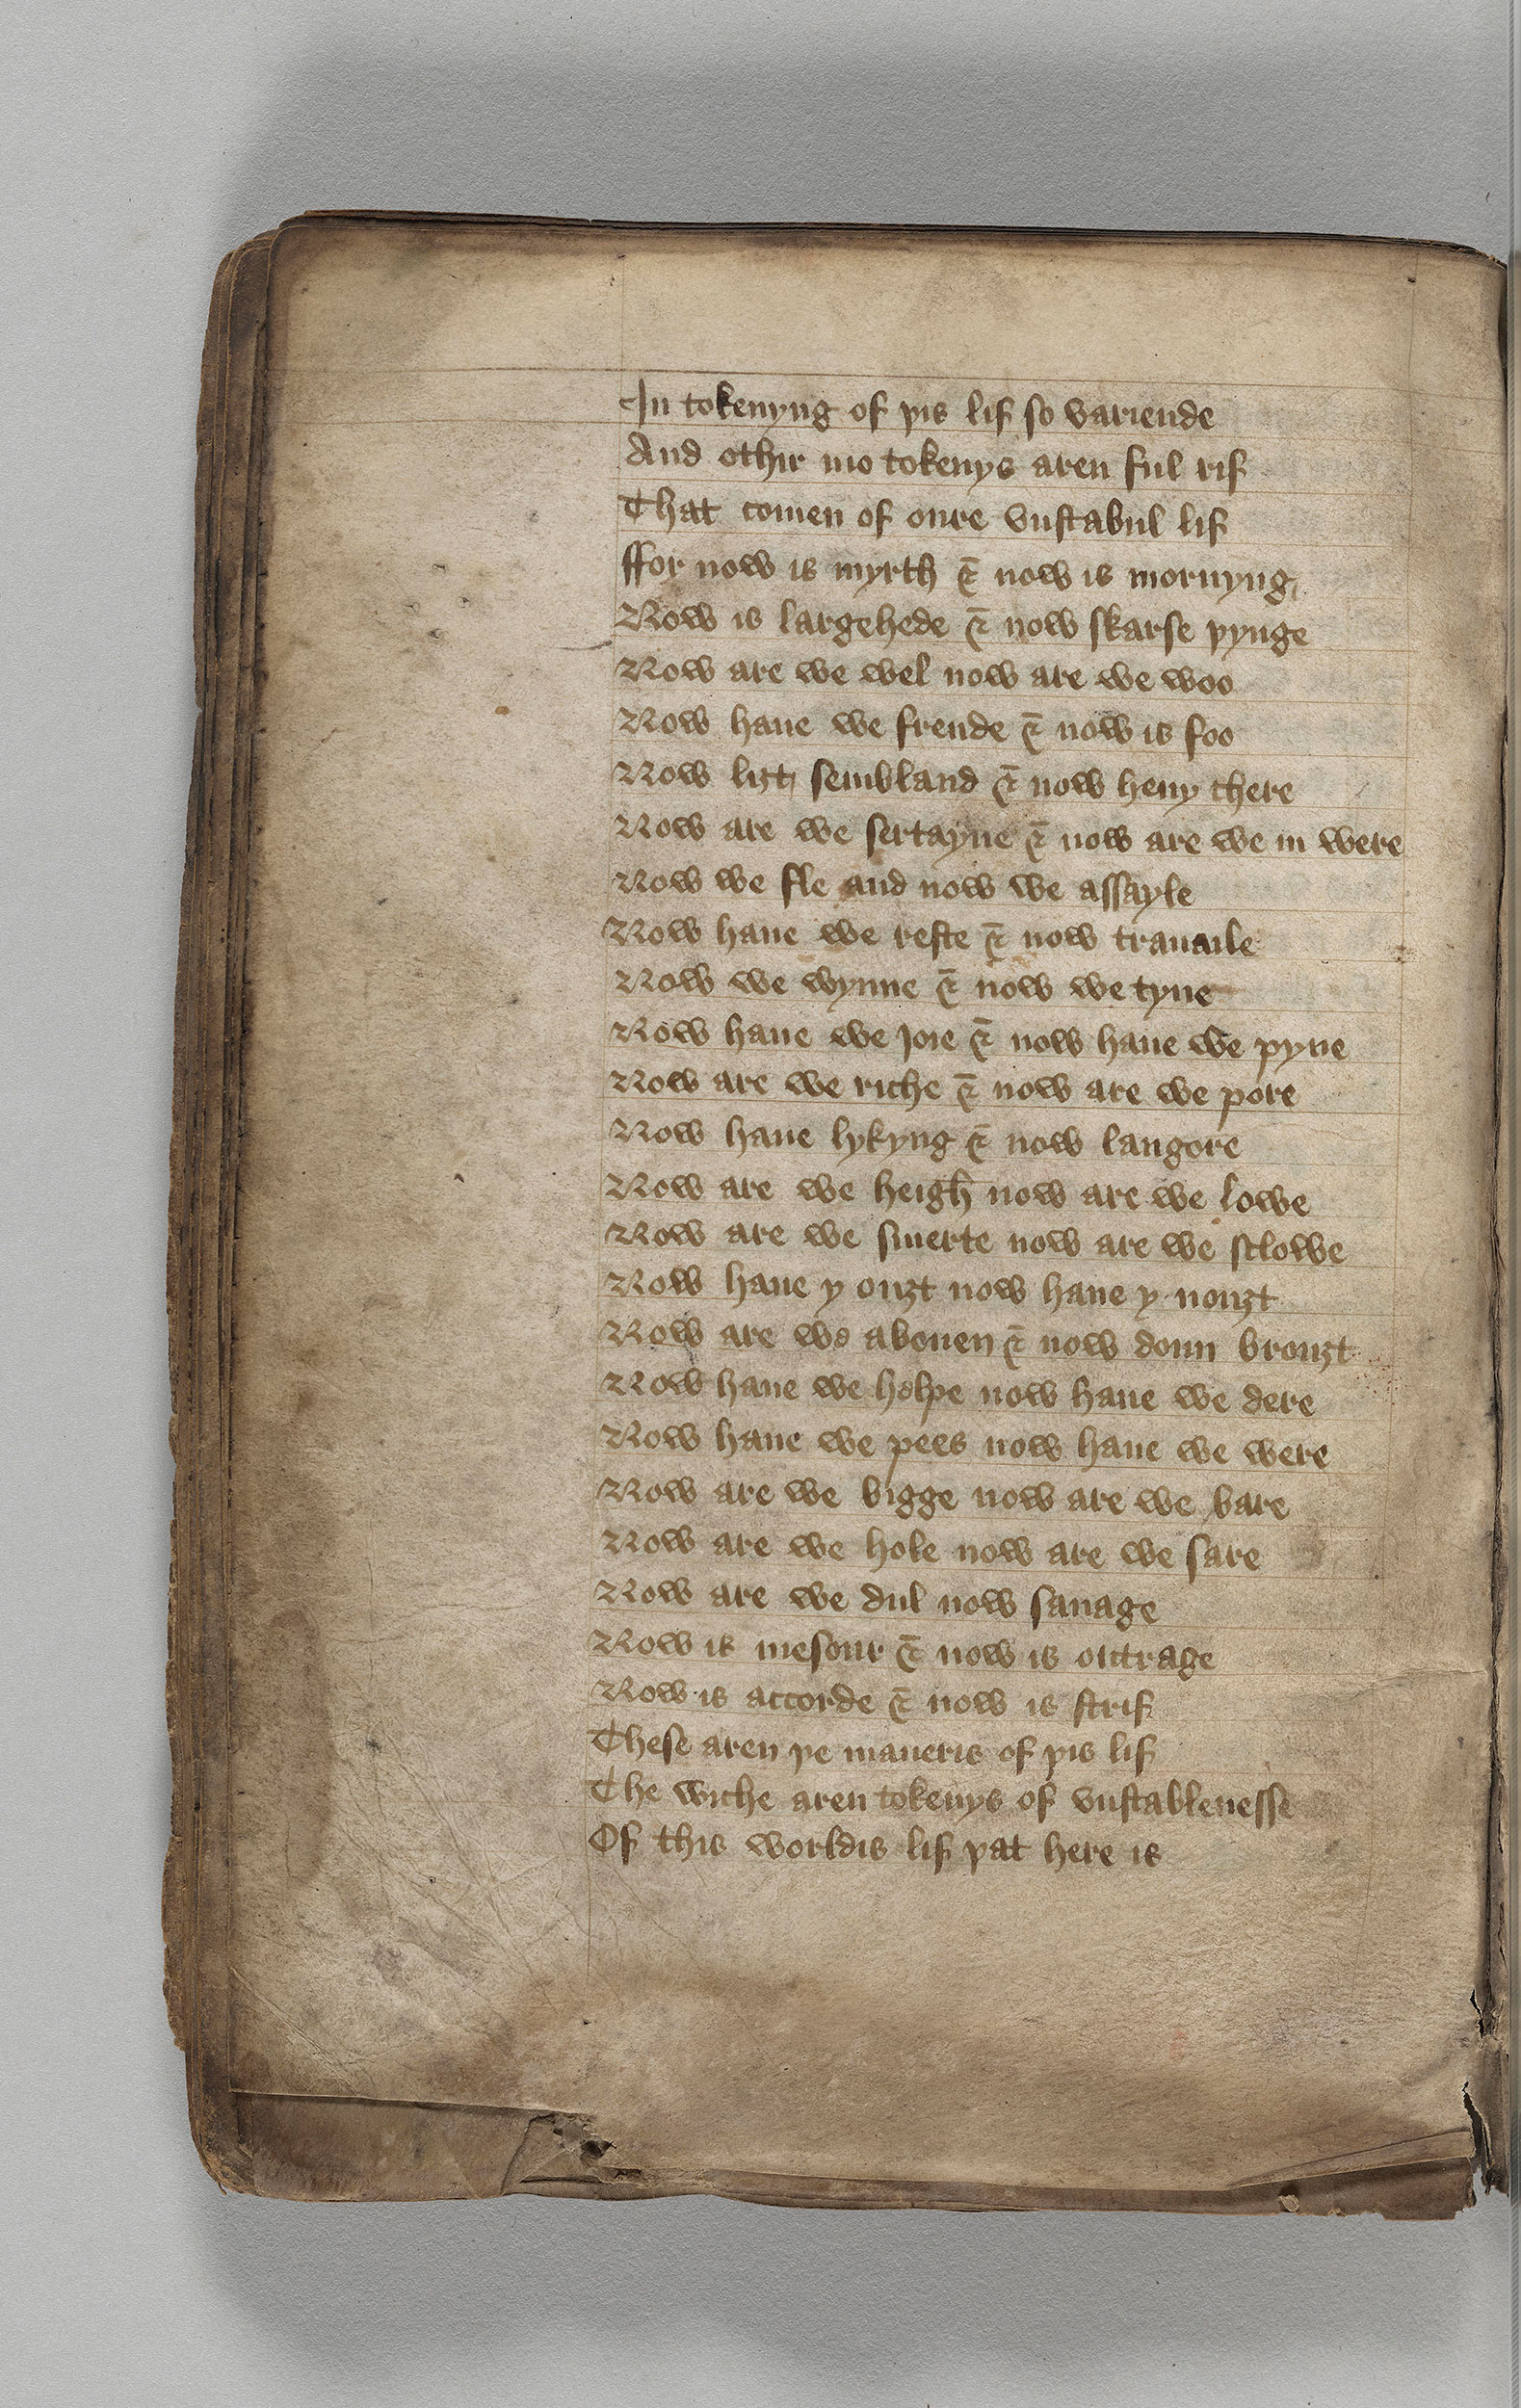 In tokenyng of þis lif so variende
And othir mo tokenys aren ful rif
That comen of oure vnstabul lif
ffor now is myrth & now is mornyng
Now is largehede & now skarse þynge
Now are we wel now are we woo
Now haue we frende & now is foo
Now liȝt sembland & now heuy chere
Now are we sertayne & now are we in were
Now we fle and now we assayle
Now haue we reste & now trauaile
Now we wynne & now we tyne
Now haue we joie & now haue we pyne
Now are we riche & now are we pore
Now haue lykyng & now langore
Now are we heigh now are we lowe
Now are we smerte now are we sclowe
Now haue y ouȝt now haue y nouȝt
Now are we abouen & now doun brouȝt
Now haue we helpe now haue we dere
Now haue we pees now haue we were
Now are we bigge now are we bare
Now are we hole now are we sare
Now are we dul now sauage
Now is mesour & now is outrage
Now is accorde & now is strif
These aren þe maneris of þis lif
The wiche aren tokenys of vnstablenesse
Of this worldis lif þat here is